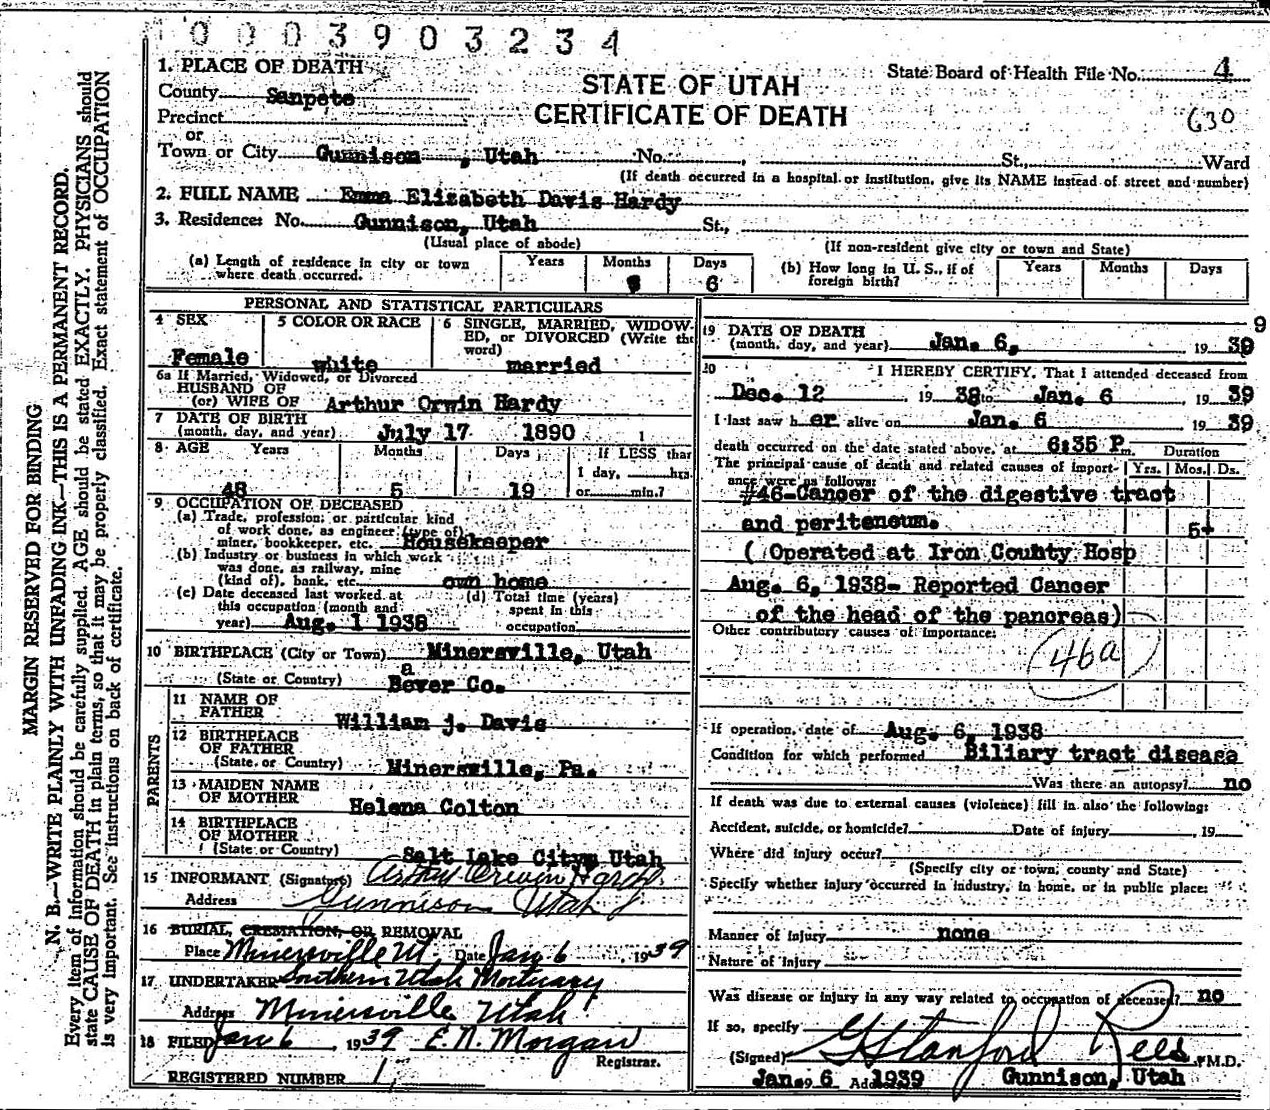 0003903234
STATE OF UTAH
CERTIFICATE OF DEATH
State Board of Health File No. 4
630
1. PLACE OF DEATH
County Sanpete
Precinct
or
Town or City Gunnison, Utah No. , St., Ward
(If death occurred in a hospital or institution, give its NAME instead of street and number)
2. FULL NAME Emma Elizabeth Davis Hardy
3. Residence: No. Gunnison, Utah St.,
(Usual place of abode) (If non-resident give city or town and State)
(a) Length of residence in city or town where death occurred. Years Months Days 6
(b) How long in U. S., if of foreign birth? Years Months Days
PERSONAL AND STATISTICAL PARTICULARS
4 SEX Female
5 COLOR OR RACE white
6 SINGLE, MARRIED, WIDOW-
ED, or DIVORCED (Write the
word) married
6a If Married, Widowed, or Divorced
HUSBAND OF
(or) WIFE OF Arthur Orwin Hardy
7 DATE OF BIRTH
(month, day, and year) July 17 1890
8 AGE Years 48 Months 5 Days 19
If LESS than
1 day, hrs.
or min.?
9 OCCUPATION OF DECEASED
(a) Trade, profession, or particular kind
of work done, as engineer (type of)
miner, bookkeeper, etc. Housekeeper
(b) Industry or business in which work
was done, as railway, mine
(kind of), bank, etc. own home
(c) Date deceased last worked at
this occupation (month and
year) Aug. 1 1938
(d) Total time (years)
spent in this
occupation
10 BIRTHPLACE (City or Town) Minersville, Utah
a
(State or Country) Bever Co.
PARENTS
11 NAME OF
FATHER William j. Davis
12 BIRTHPLACE
OF FATHER
(State or Country) Minersville, Pa.
13 MAIDEN NAME
OF MOTHER Helena Colton
14 BIRTHPLACE
OF MOTHER
(State or Country) Salt Lake City, Utah
15 INFORMANT (Signature) Arthur Orwin Hardy
Address Gunnison Utah
16 BURIAL, CREMATION, OR REMOVAL
Place Minersville Ut. Date Jan 6, 1939
17 UNDERTAKER Southern Utah Mortuary
Address Minersville Utah
18 FILED Jan 6, 1939 E. N. Morgan
Registrar.
REGISTERED NUMBER 1
9
19 DATE OF DEATH
(month, day, and year) Jan. 6, 19 39
20 I HEREBY CERTIFY, That I attended deceased from
Dec. 12 19 38 to Jan. 6 19 39
I last saw h er alive on Jan. 6 19 39
death occurred on the date stated above, at 6:35 P m.
Duration
The principal cause of death and related causes of import-
ance were as follows: Yrs. Mos. Ds.
#46-Cancer of the digestive tract
and peritoneum. 5+
( Operated at Iron County Hosp
Aug. 6, 1938- Reported Cancer
of the head of the pancreas)
Other contributory causes of importance:
46a
If operation, date of Aug. 6, 1938
Condition for which performed Biliary tract disease
Was there an autopsy? no
If death was due to external causes (violence) fill in also the following:
Accident, suicide, or homicide? Date of injury , 19
Where did injury occur?
(Specify city or town, county and State)
Specify whether injury occurred in industry, in home, or in public place:
Manner of Injury none
Nature of Injury
Was disease or injury in any way related to occupation of deceased? no
If so, specify
(Signed) G Stanford Rees, M.D.
Jan. 6 Address 1939 Gunnison, Utah
MARGIN RESERVED FOR BINDING
N. B.—WRITE PLAINLY WITH UNFADING INK—THIS IS A PERMANENT RECORD.
Every item of information should be carefully supplied. AGE should be stated EXACTLY. PHYSICIANS should
state CAUSE OF DEATH in plain terms, so that it may be properly classified. Exact statement of OCCUPATION
is very important. See instructions on back of certificate.